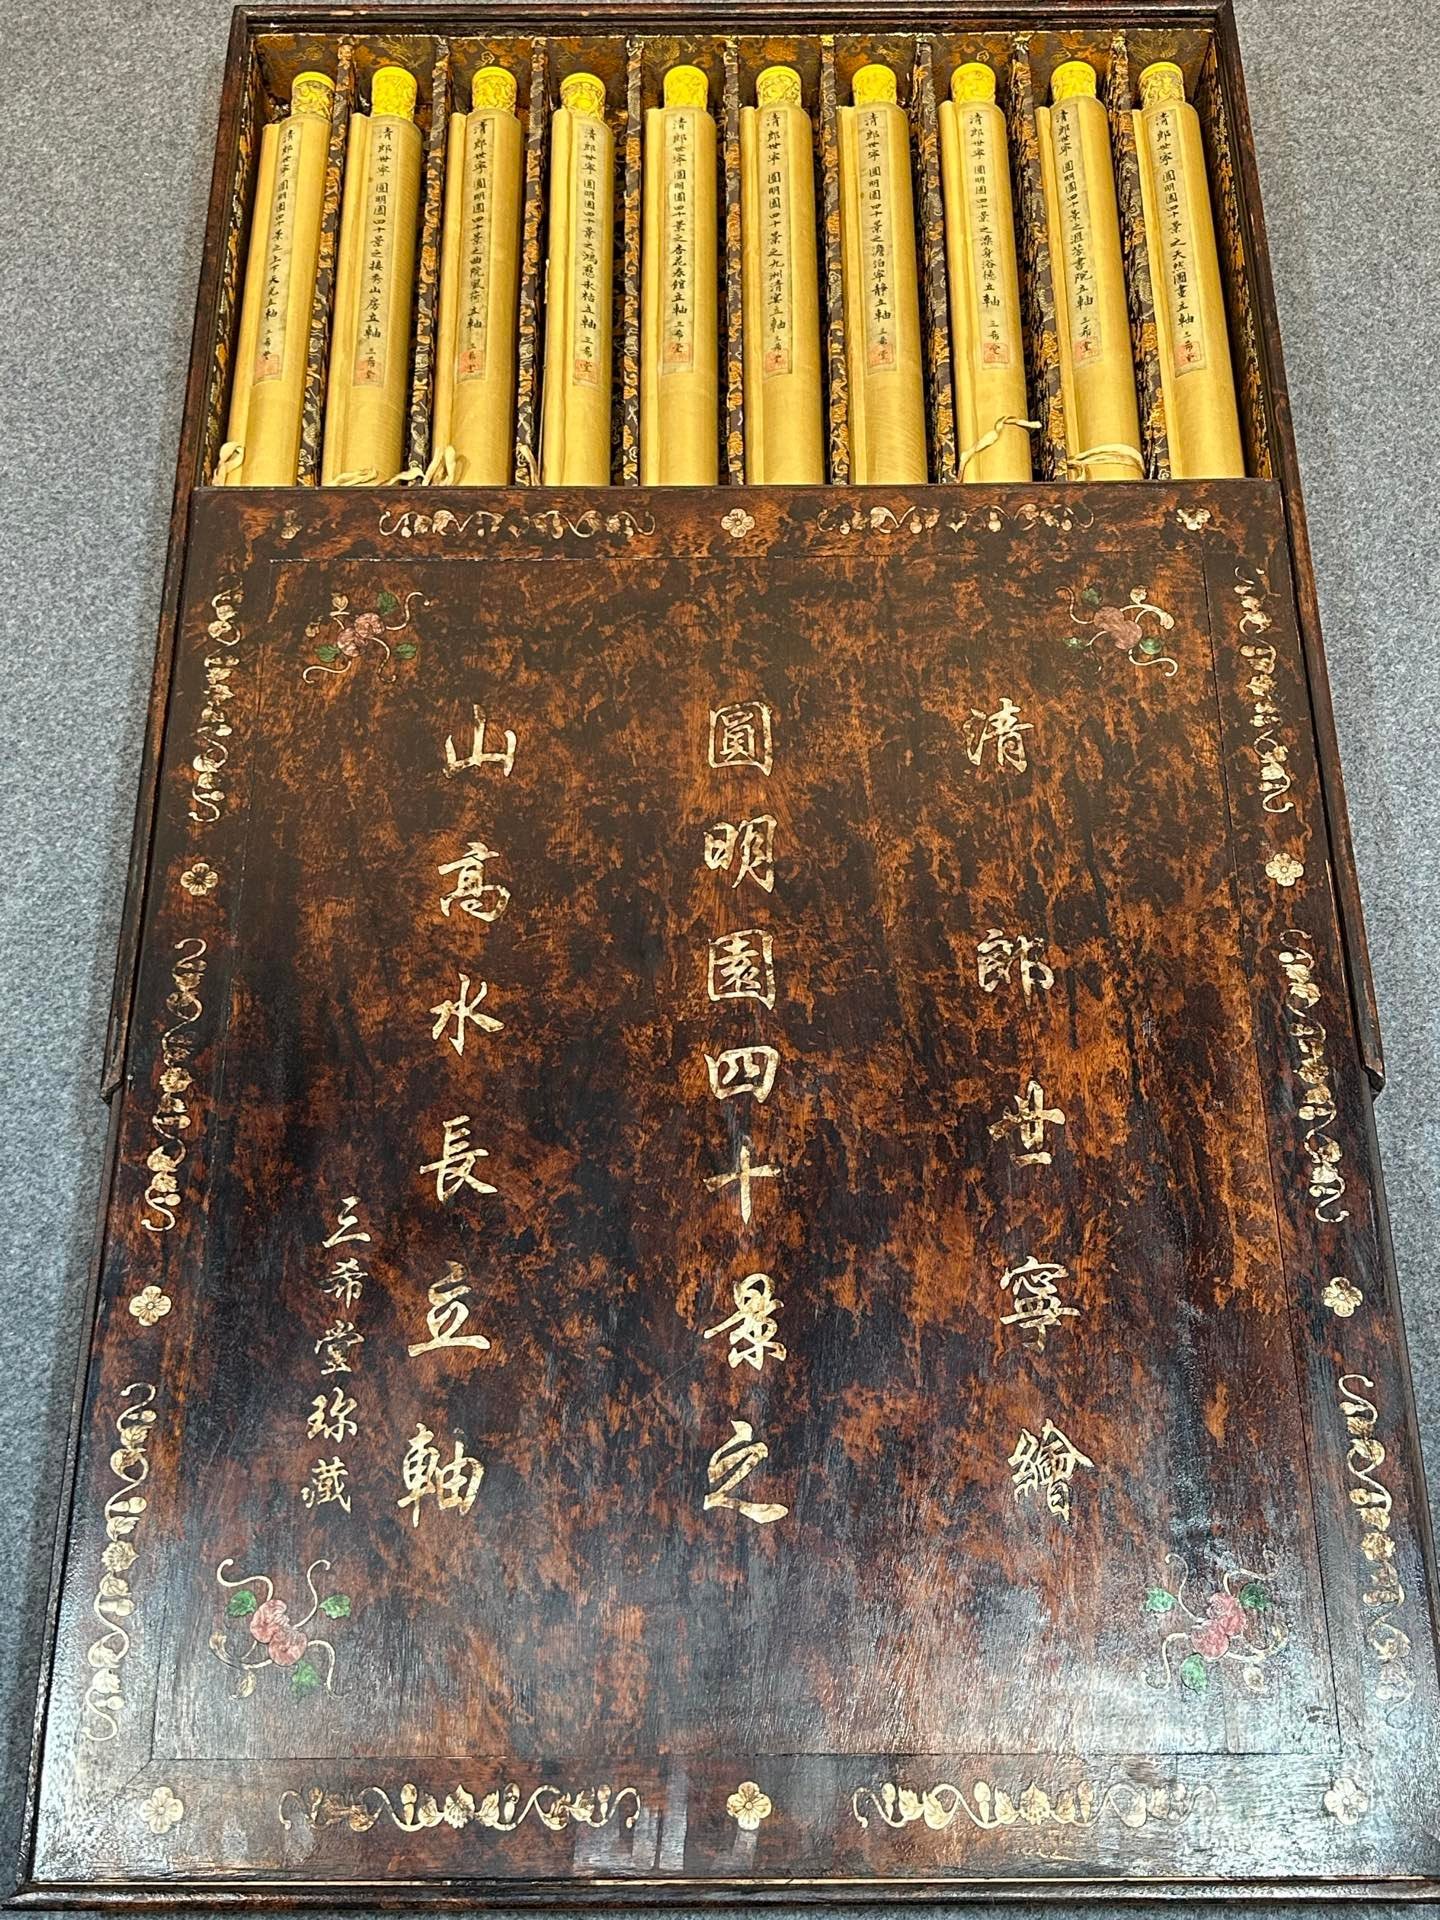 清郎世寧 圓明園四十景之天然圖畫立軸 三希堂
清郎世寧 圓明園四十景之洄芳書院立軸 三希堂
清郎世寧 圓明園四十景之澡身浴德立軸 三希堂
清郎世寧 圓明園四十景之澹泊寧靜立軸 三希堂
清郎世寧 圓明園四十景之九洲清宴立軸 三希堂
清郎世寧 圓明園四十景之杏花春館立軸 三希堂
清郎世寧 圓明園四十景之鴻慈永祜立軸 三希堂
清郎世寧 圓明園四十景之曲院風荷立軸 三希堂
清郎世寧 圓明園四十景之接秀山房立軸 三希堂
清郎世寧 圓明園四十景之上下天光立軸 三希堂
清郎世寧繪
圓明園四十景之
山高水長立軸
三希堂珎藏